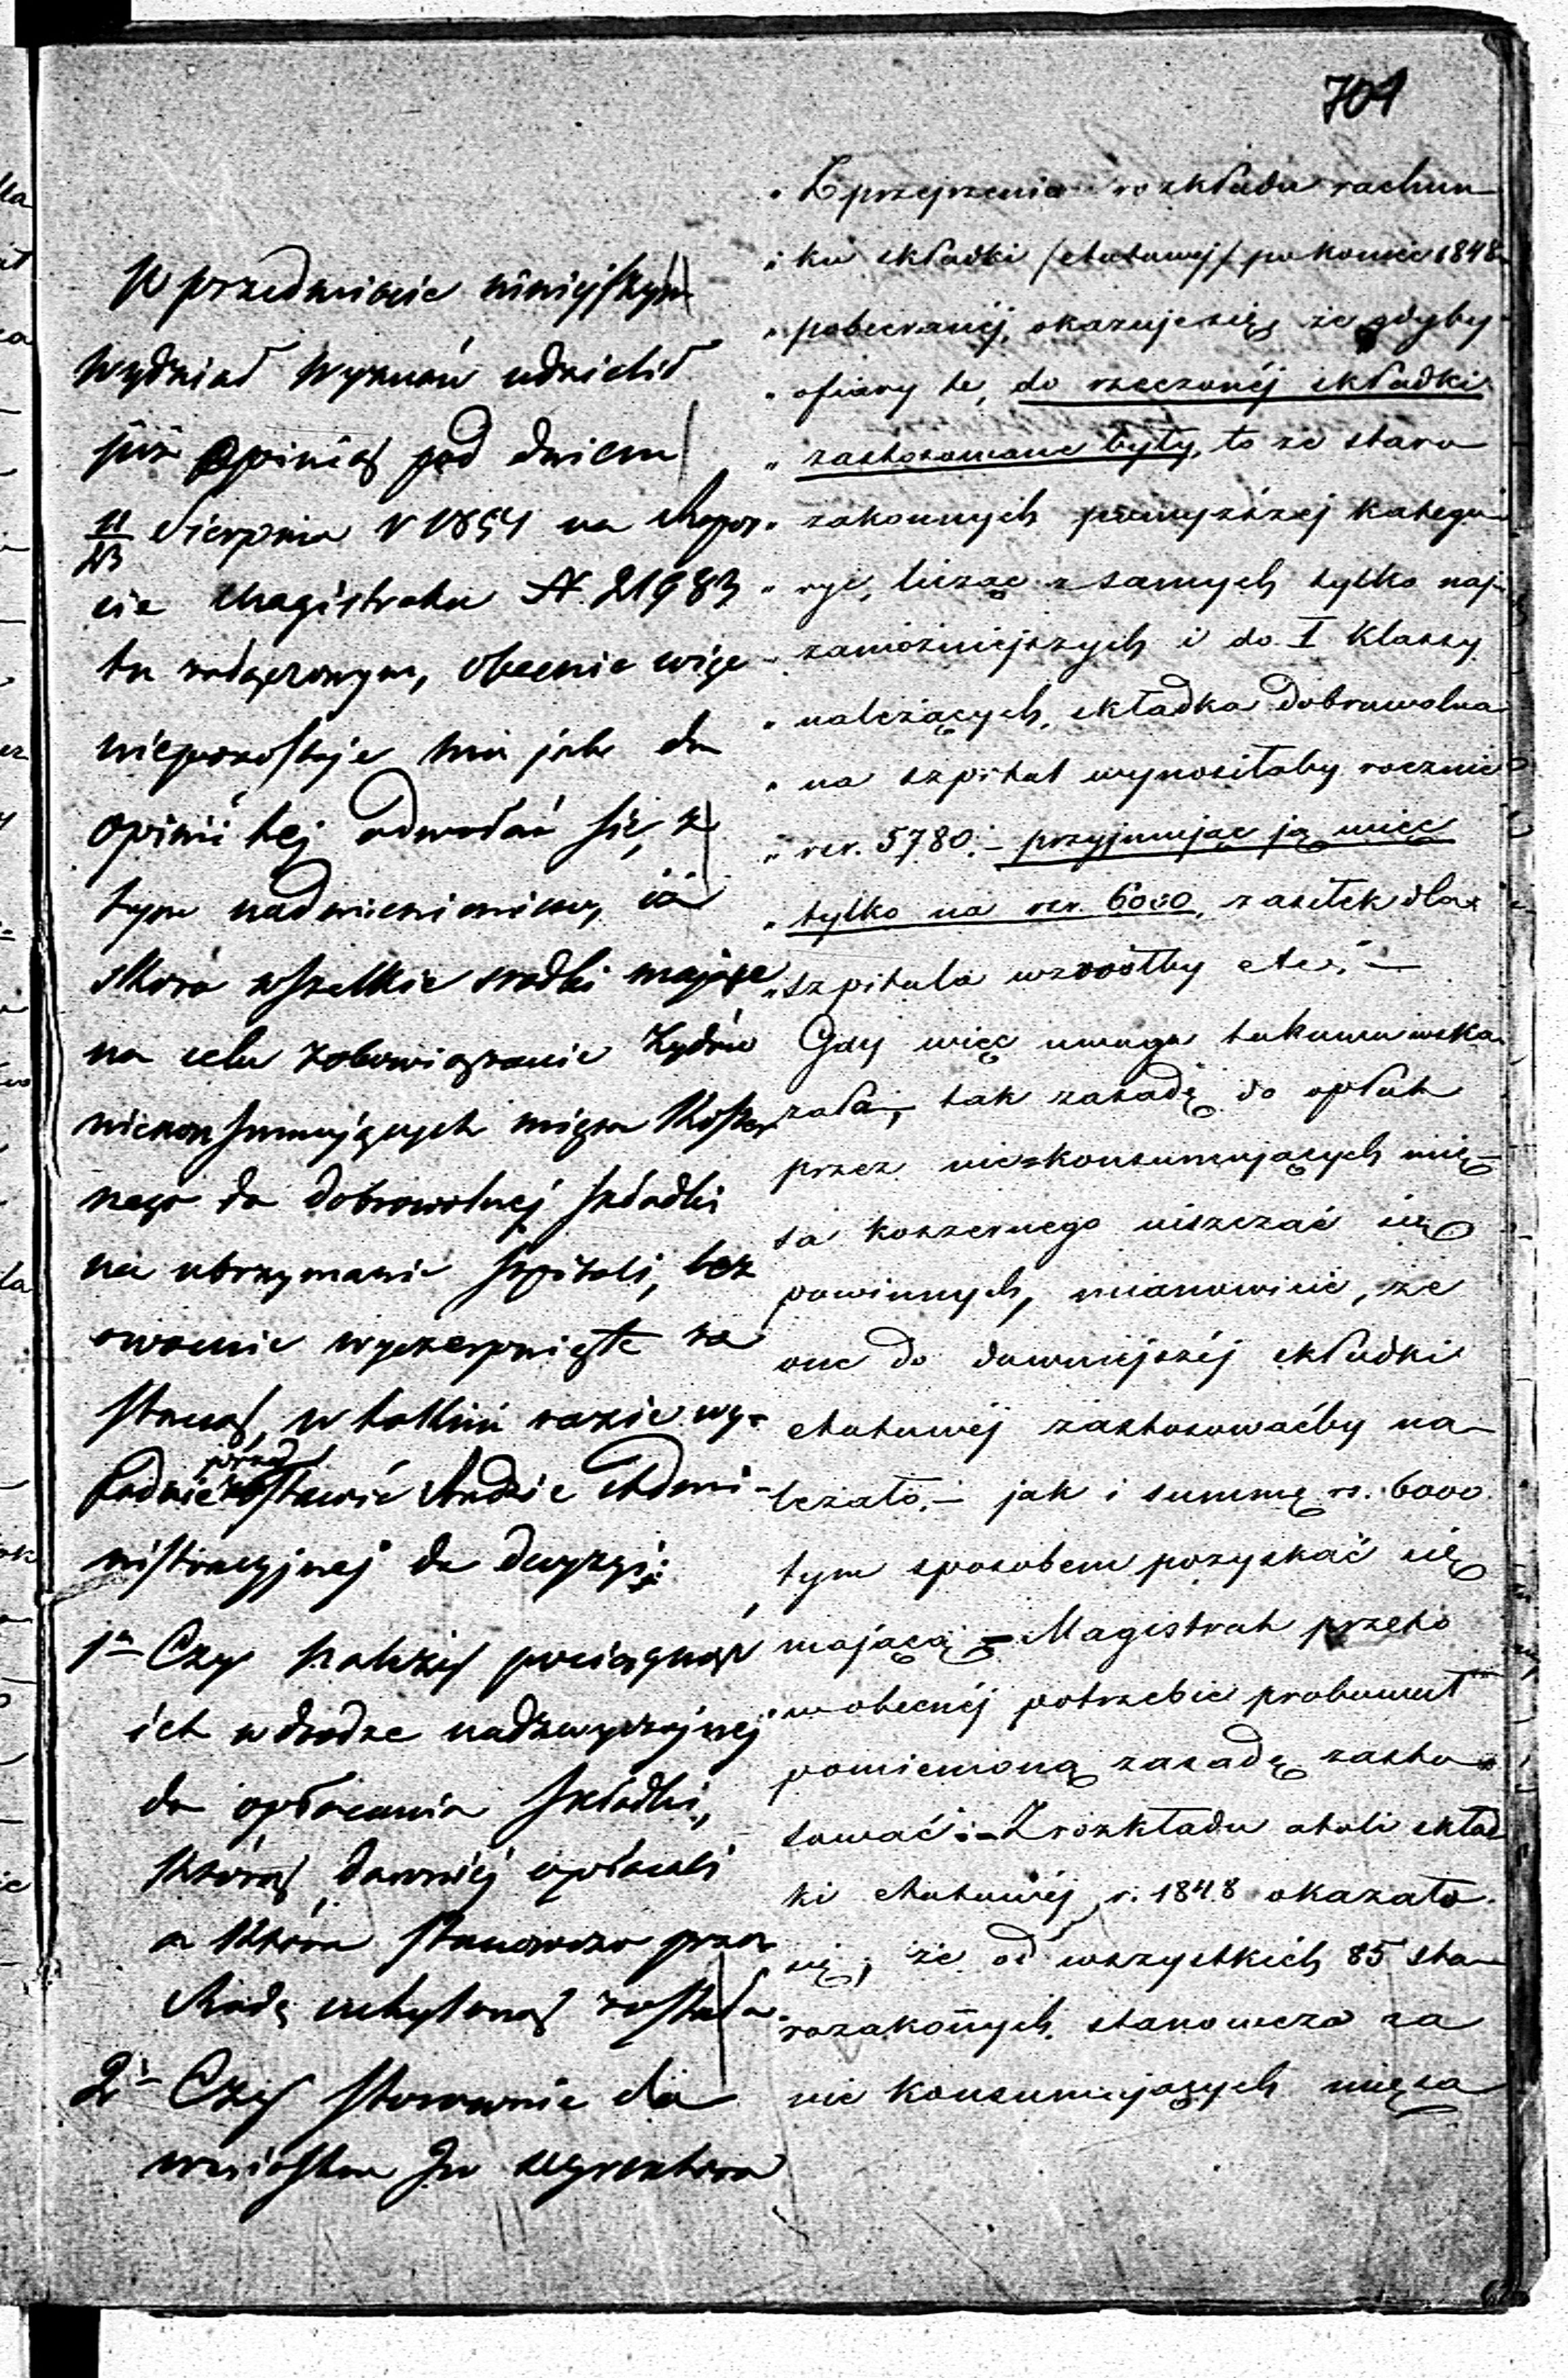 701
W przedmiocie niniejszym
Wydział Wyznań udzielił
już opinią pod dniem
11/23 Sierpnia r 1854 na Rapor-
cie Magistratu N. 21983
tu załączonym, obecnie więc
niepozostaje mu jak do
opinii tej odwołać się, z
tym nadmienieniem, iż
skoro wszelkie środki mające
na celu zobowiązanie Żydów
niekonsumujących mięsa Koszer
nego do dobrowolnej składki
na utrzymanie szpitali, bez
owocnie wyczerpnięte zo
staną, w takim razie wy-
padnie przedstawić Radzie Admi-
nistracyjnej do decyzyi:
1o Czy należy pociągnąć
ich w drodze nadzwyczajnej
do opłacania składki,
którą dawniej opłacali
a która stanowczo przez
Radę uchyloną została.
2o Czy stosownie do
wniosku Jw Dyrektora
„ Z przejrzenia rozkładu rachun
„ ku składki /etatowej/ po koniec 1848 r.
„ pobieranéj, okazuje się, że gdyby
„ ofiary te, do rzeczonéj składki
„ zastosowane były, to ze staro
„ zakonnych powyższej katego
„ ryi, licząc z samych tylko naj
„ zamożniejszych i do I Klassy
„ należących, składka dobrowolna
„ na szpital wynosiłaby rocznie
„ rsr. 5780.– przyjmując ją więc
„ tylko na rsr. 6000, zasiłek dla
„ szpitala wzrósłby etc.–
Gdy więc uwaga takowa wska
zała, tak zasadę do opłat
przez nieskonsumujących mię-
sa koszernego uiszczać się
powinnych, mianowicie, że
one do dawniejszéj składki
etatowéj zastosowaćby na-
leżało.– jak i summę rs. 6000
tym sposobem pozyskać się
mającą – Magistrat przeto
w obecnéj potrzebie probował
pomienioną zasadę zasto
sować:– Z rozkładu atoli skład
ki etatowéj r. 1848 okazało
się, że od wszystkich 85 sta-
rozakonnych stanowczo za
nie konsumujących mięsa